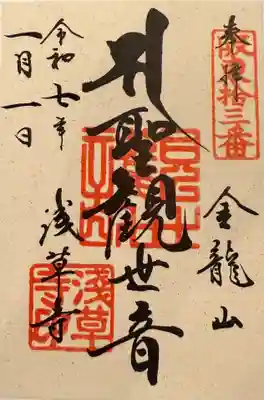 奉拝
坂東拾三番
金龍山
聖観世音
浅草寺
令和七年
一月一日
浅草寺